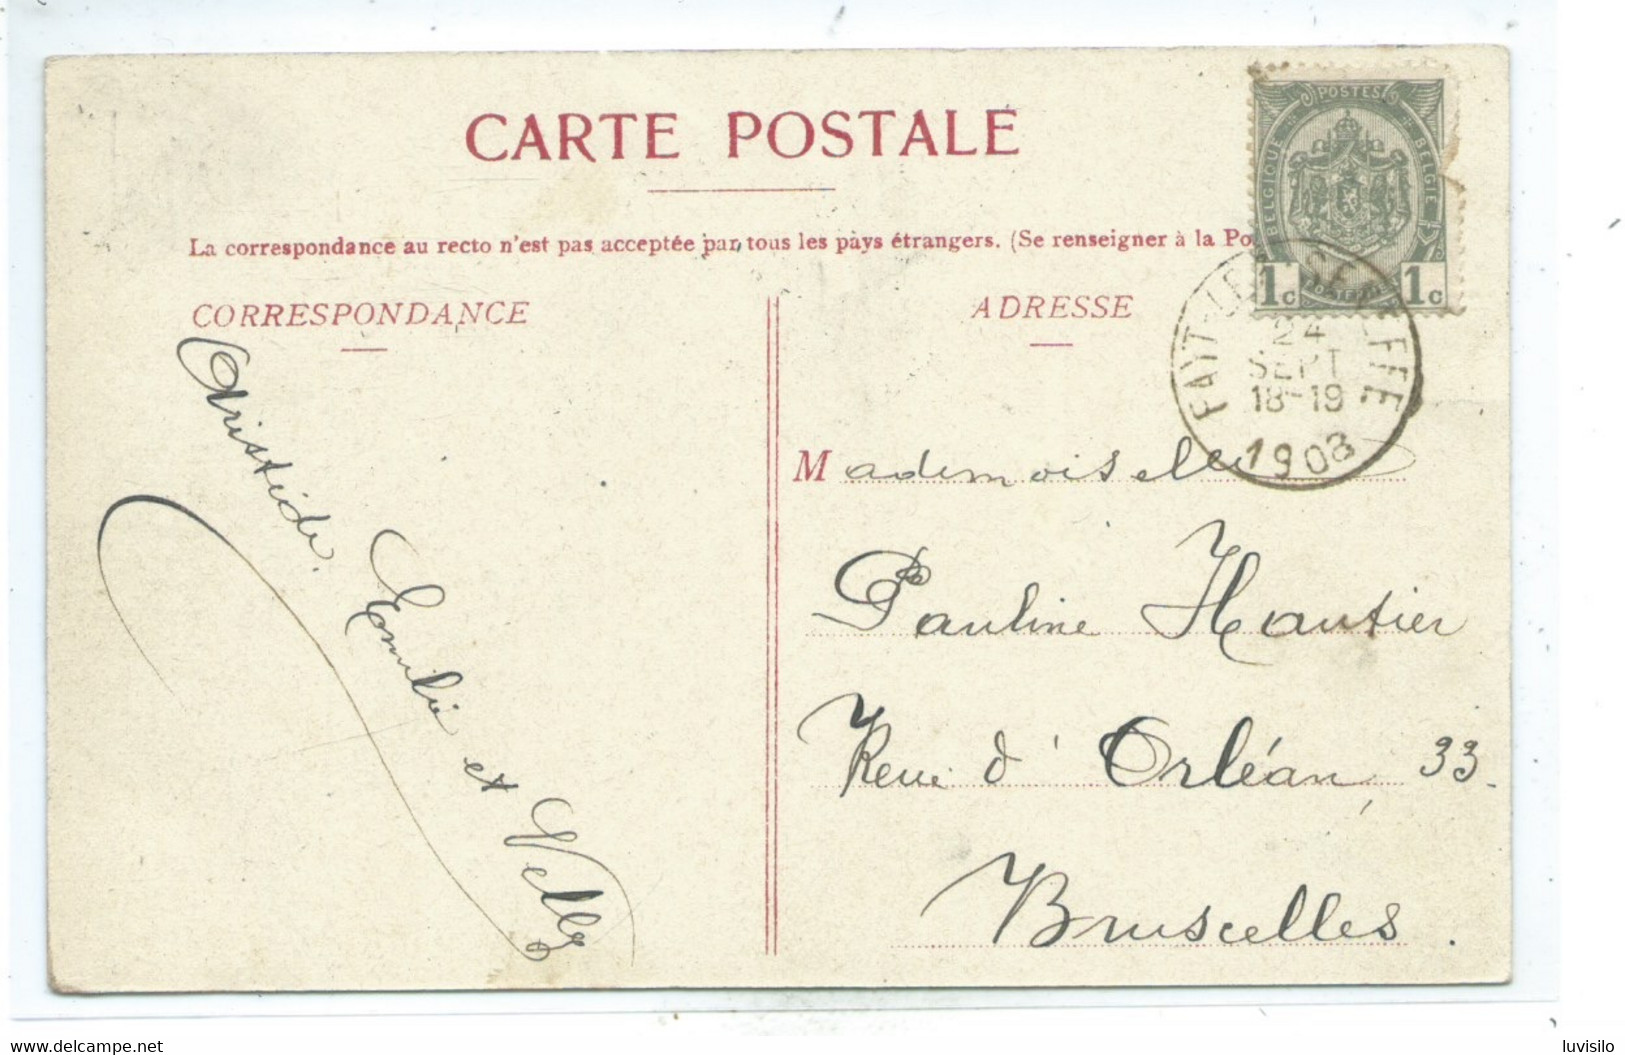 CARTE POSTALE
La correspondance au recto n'est pas acceptée par tous les pays étrangers. (Se renseigner à la Po
POSTES
BELGIQUE
BELGIË
1c 1c
FAYT-LEZ-SENEFFE
24
SEPT
18-19
1908
CORRESPONDANCE
ADRESSE
Aristide.
Emilie
et Nelly
Mademoiselle
Pauline Hautier
Rue d'Orléan, 33.
Bruxelles.
www.delcampe.net
luvisilo